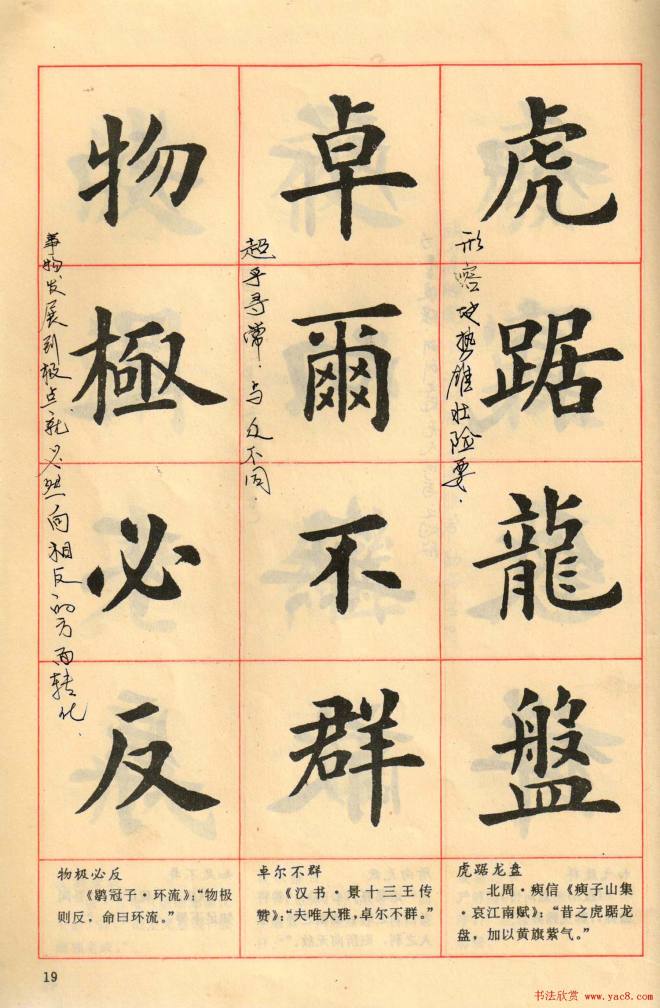 虎踞龍盤
形容地势雄壮险要.
卓爾不群
超乎寻常.与众不同.
物極必反
事物发展到极点.就必然向相反的方面转化.
物极必反
《鹖冠子·环流》：“物极
则反，命曰环流。”
卓尔不群
《汉书·景十三王传
赞》：“夫唯大雅，卓尔不群。”
虎踞龙盘
北周·瘐信《瘐子山集
·哀江南赋》：“昔之虎踞龙
盘，加以黄旗紫气。”
19
书法欣赏 www.yac8.com